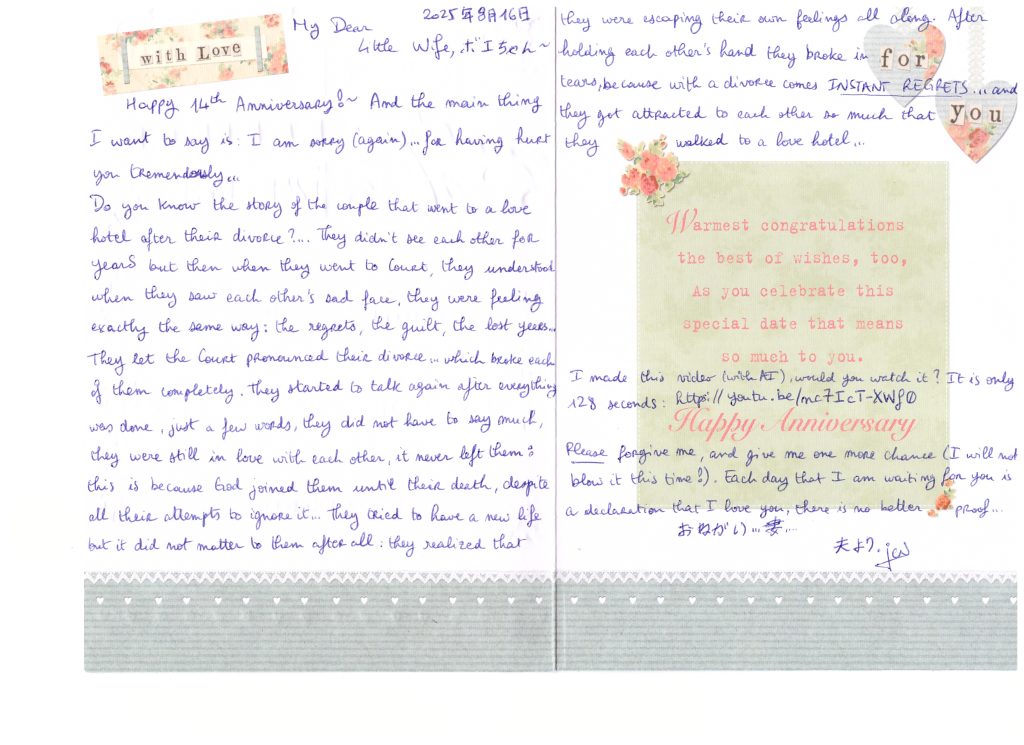 with Love
2025年8月16日
My Dear
Little Wife, ボエちゃん~
Happy 14th Anniversary!~ And the main thing
I want to say is: I am sorry (again)... for having hurt
you tremendously...
Do you know the story of the couple that went to a love
hotel after their divorce?... They didn't see each other for
years but then when they went to Court, they understood
when they saw each other's sad face, they were feeling
exactly the same way: the regrets, the guilt, the lost years...
They let the Court pronounced their divorce... which broke each
of them completely. They started to talk again after everything
was done, just a few words, they did not have to say much,
they were still in love with each other, it never left them!
this is because God joined them until their death, despite
all their attempts to ignore it... They tried to have a new life
but it did not matter to them after all: they realized that
they were escaping their own feelings all along. After
holding each other's hand they broke in
tears, because with a divorce comes INSTANT REGRETS... and
they got attracted to each other so much that
they walked to a love hotel...
for
you
Warmest congratulations
the best of wishes, too,
As you celebrate this
special date that means
so much to you.
I made this video (with AI), would you watch it? It is only
128 seconds: https://youtu.be/mc7IcT-XWf0
Happy Anniversary
Please forgive me, and give me one more chance (I will not
blow it this time!). Each day that I am waiting for you is
a declaration that I love you, there is no better proof...
おねがい...妻...
夫より. jcw